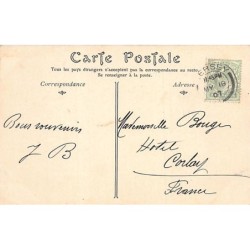 Carte Postale
Tous les pays étrangers n'acceptent pas la correspondance au recto.
Se renseigner à la poste.
Correspondance
Adresse
Bons souvenirs
J B
Mademoiselle Bouge
Hotel
Corlay
France